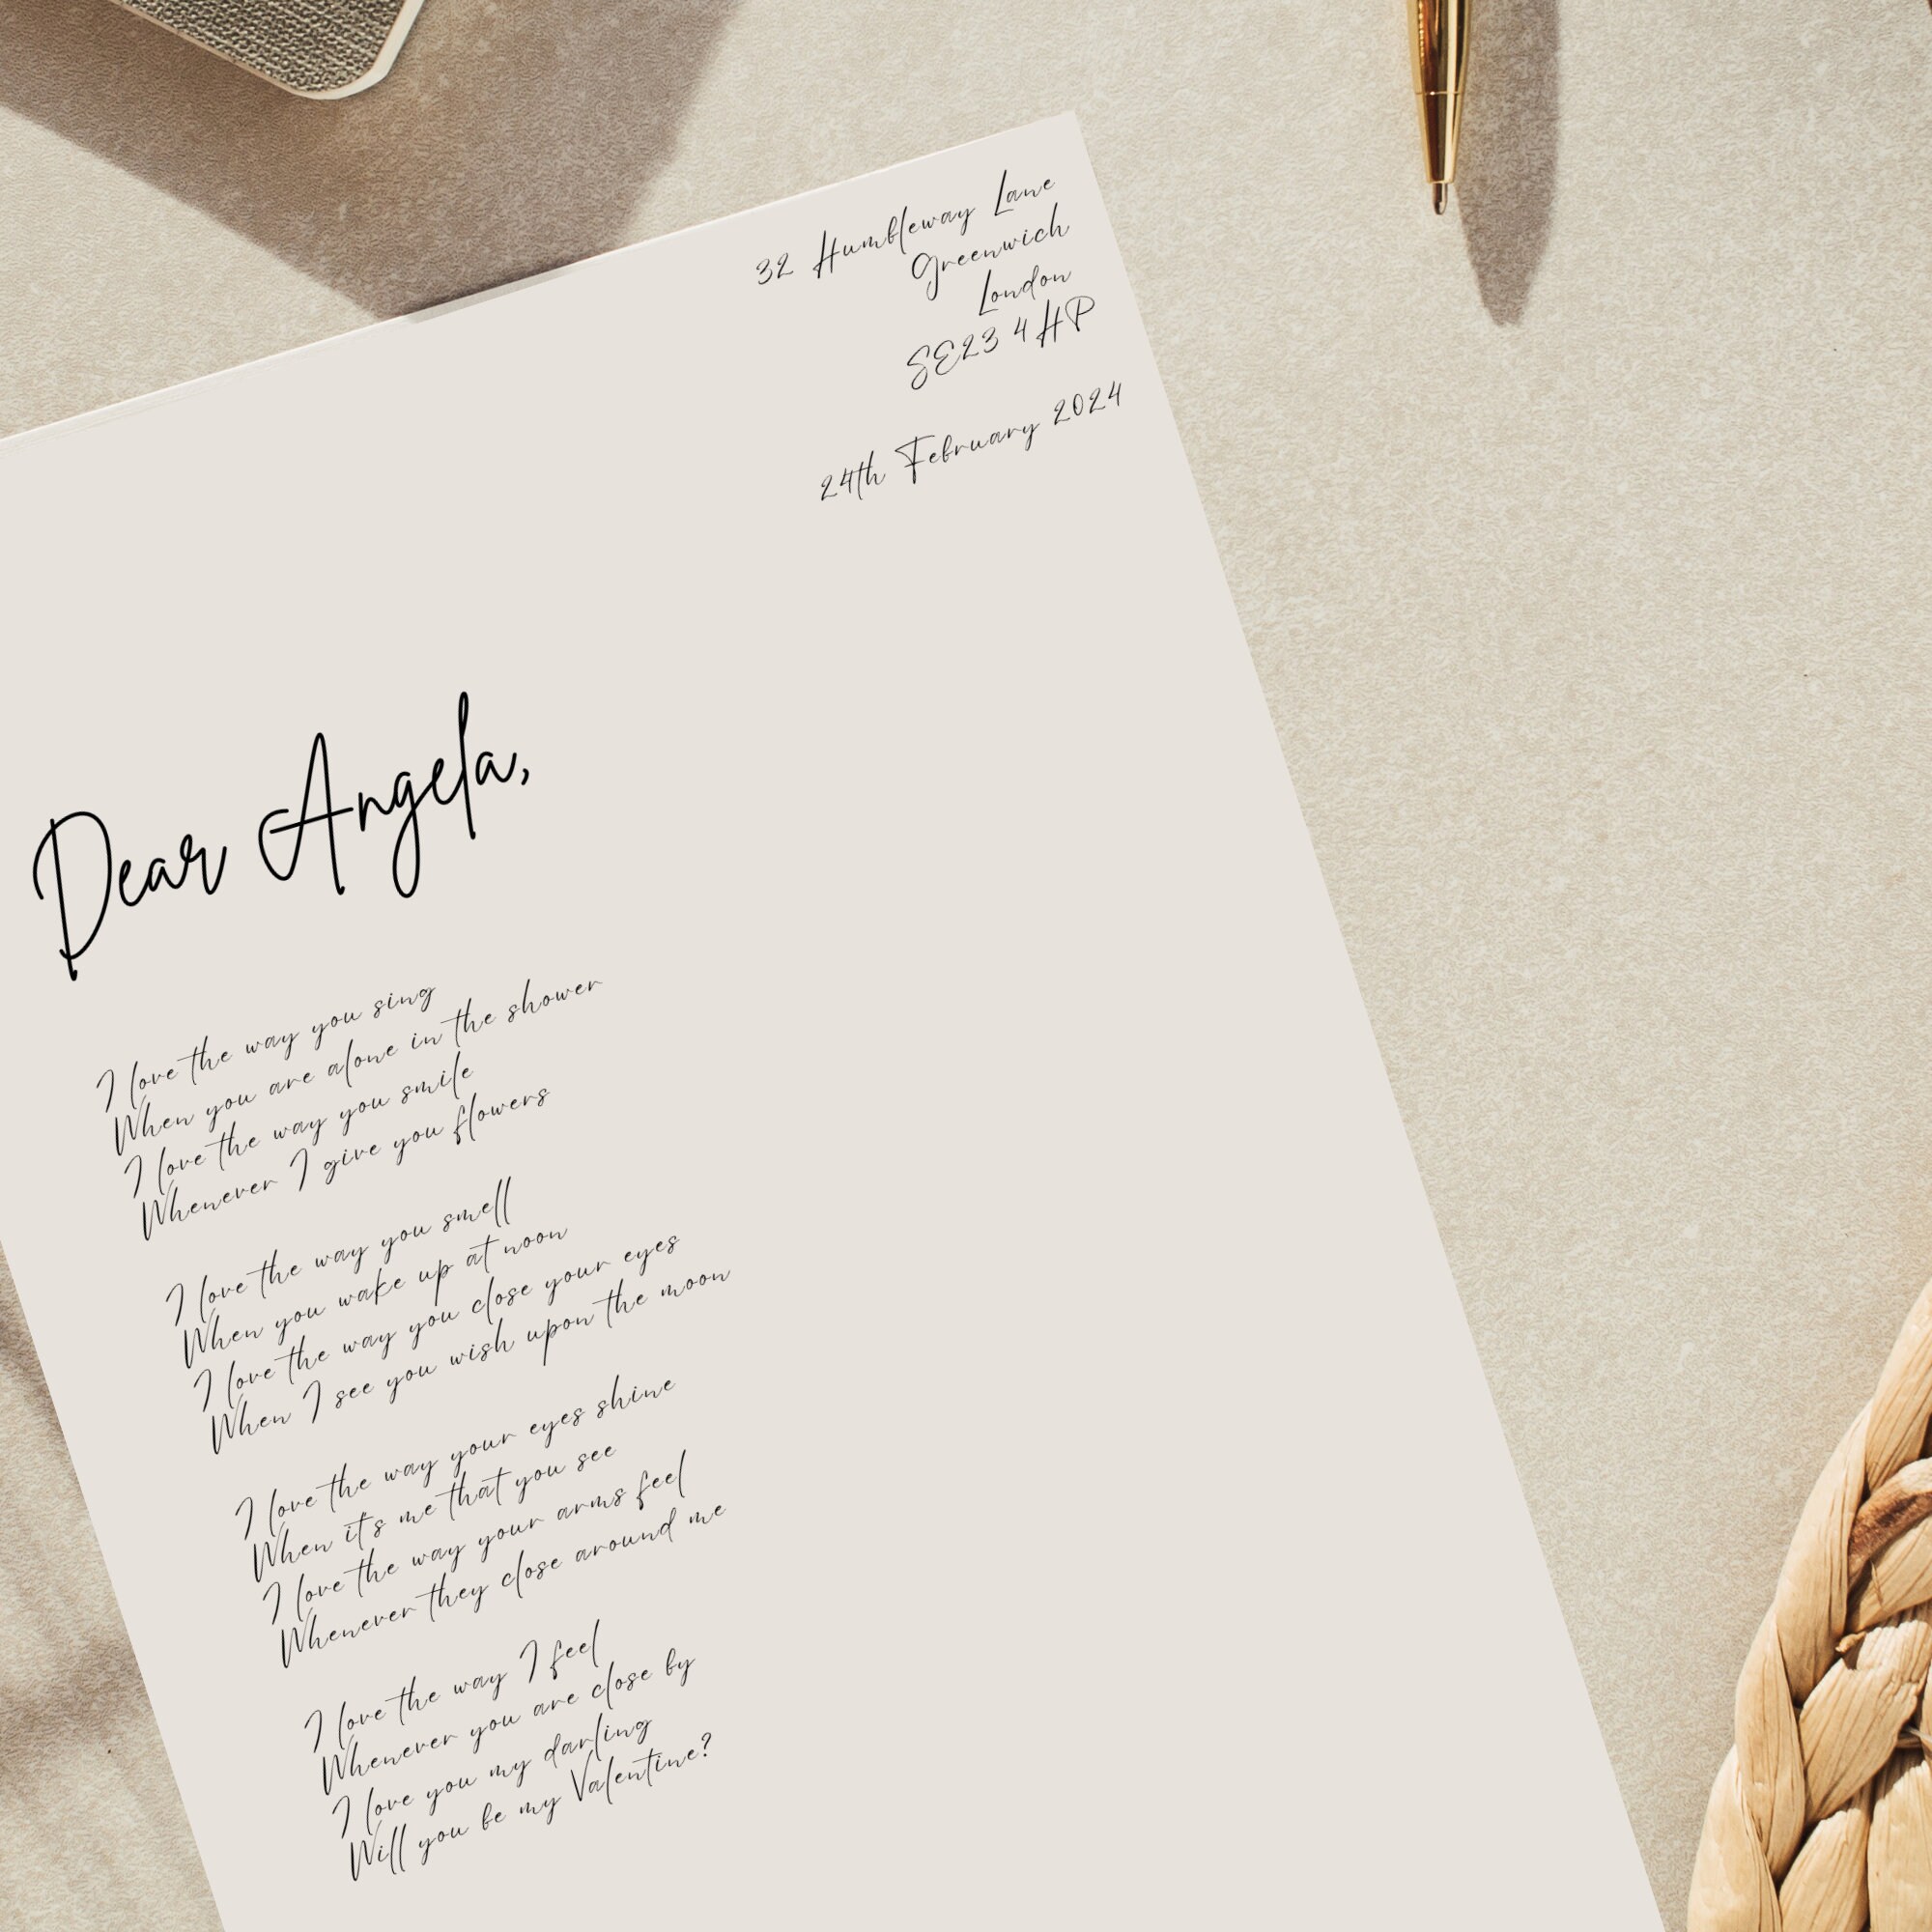 32 Humbleway Lane
Greenwich
London
SE23 4HP
24th February 2024
Dear Angela,
I love the way you sing
When you are alone in the shower
I love the way you smile
Whenever I give you flowers
I love the way you smell
When you wake up at noon
I love the way you close your eyes
When I see you wish upon the moon
I love the way your eyes shine
When it's me that you see
I love the way your arms feel
Whenever they close around me
I love the way I feel
Whenever you are close by
I love you my darling
Will you be my Valentine?